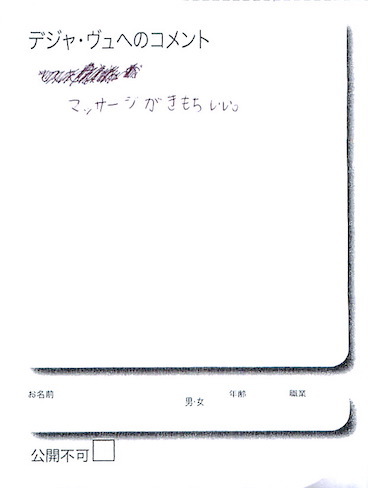 デジャ・ヴュへのコメント
マッサージがきもちいい。
お名前
男・女
年齢
職業
公開不可